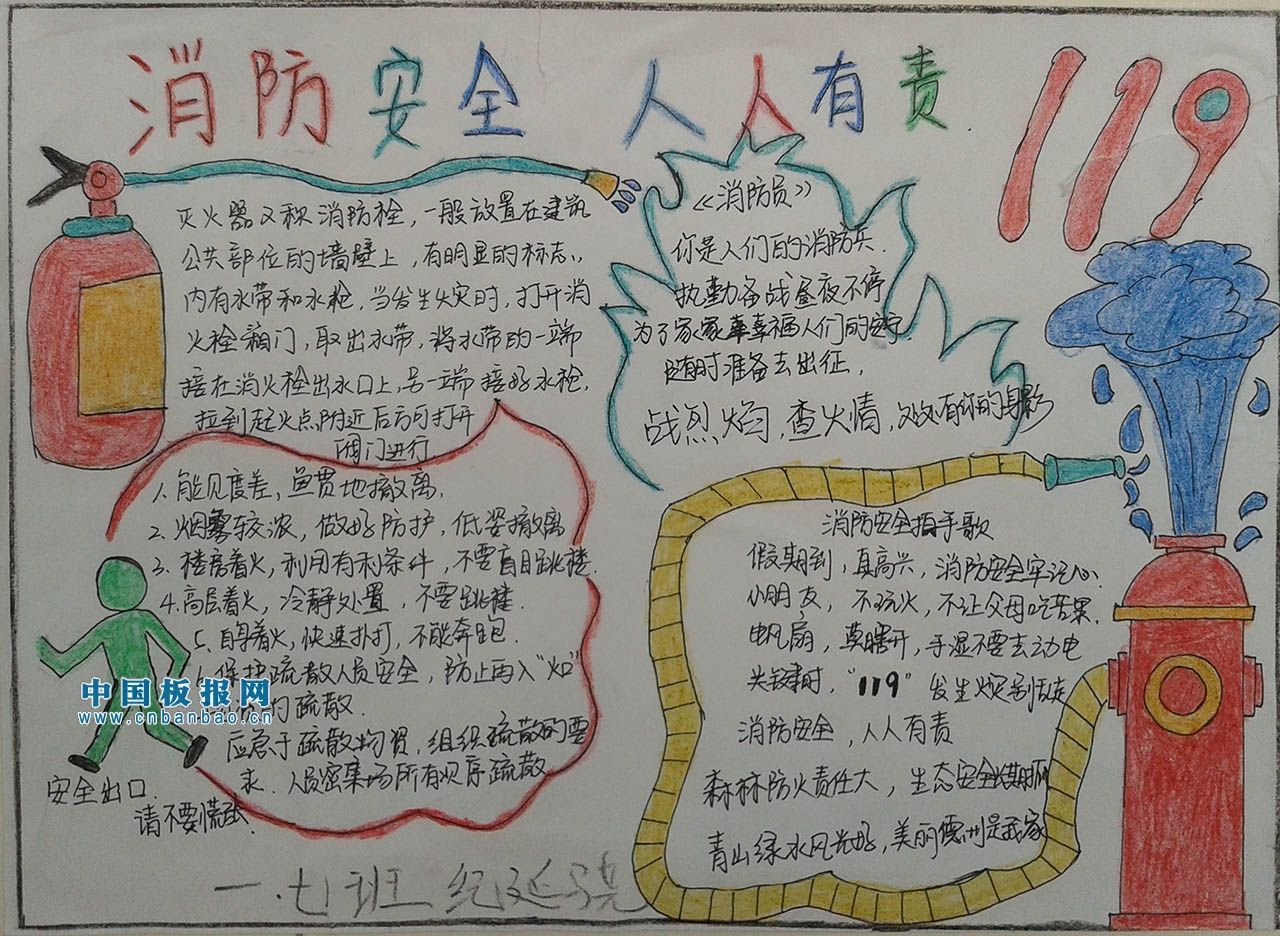 消防安全 人人有责
119
灭火器又称消防栓，一般放置在建筑
公共部位的墙壁上，有明显的标志，
内有水带和水枪，当发生火灾时，打开消
火栓箱门，取出水带，将水带的一端
接在消火栓出水口上，另一端接好水枪，
拉到起火点附近后方可打开
阀门进行
《消防员》
你是人们的消防兵
执勤备战昼夜不停
为了家家幸福人们的安宁
随时准备去出征，
战烈焰，查火情，处处有你的身影
1、能见度差，鱼贯地撤离，
2、烟雾较浓，做好防护，低姿撤离
3、楼房着火，利用有利条件，不要盲目跳楼.
4.高层着火，冷静处置，不要跳楼.
5、自身着火，快速扑打，不能奔跑.
保护疏散人员安全，防止再入"火口"
的疏散.
应急于疏散均习，组织疏散的要
求.人员密集场所有顺序疏散
安全出口.
请不要慌张.
消防安全拍手歌
假期到，真高兴，消防安全牢记心.
小朋友，不玩火，不让父母吃苦果.
电风扇，莫瞎开，手湿不要去动电
关键时，"119"发生火灾别乱走
消防安全，人人有责
森林防火责任大，生态安全
青山绿水风光好，美丽德州是我家
一.七班 纪延骁
中国板报网
www.cnbanbao.cn